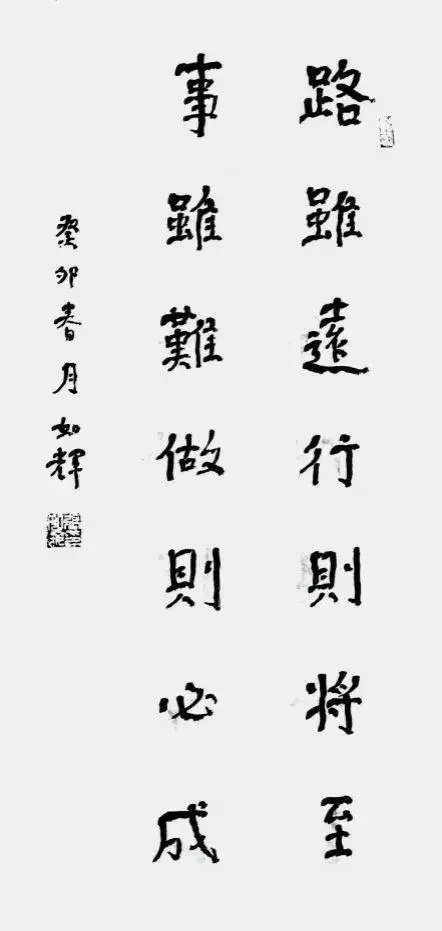 路雖遠行則將至
事雖難做則必成
癸卯春月如輝